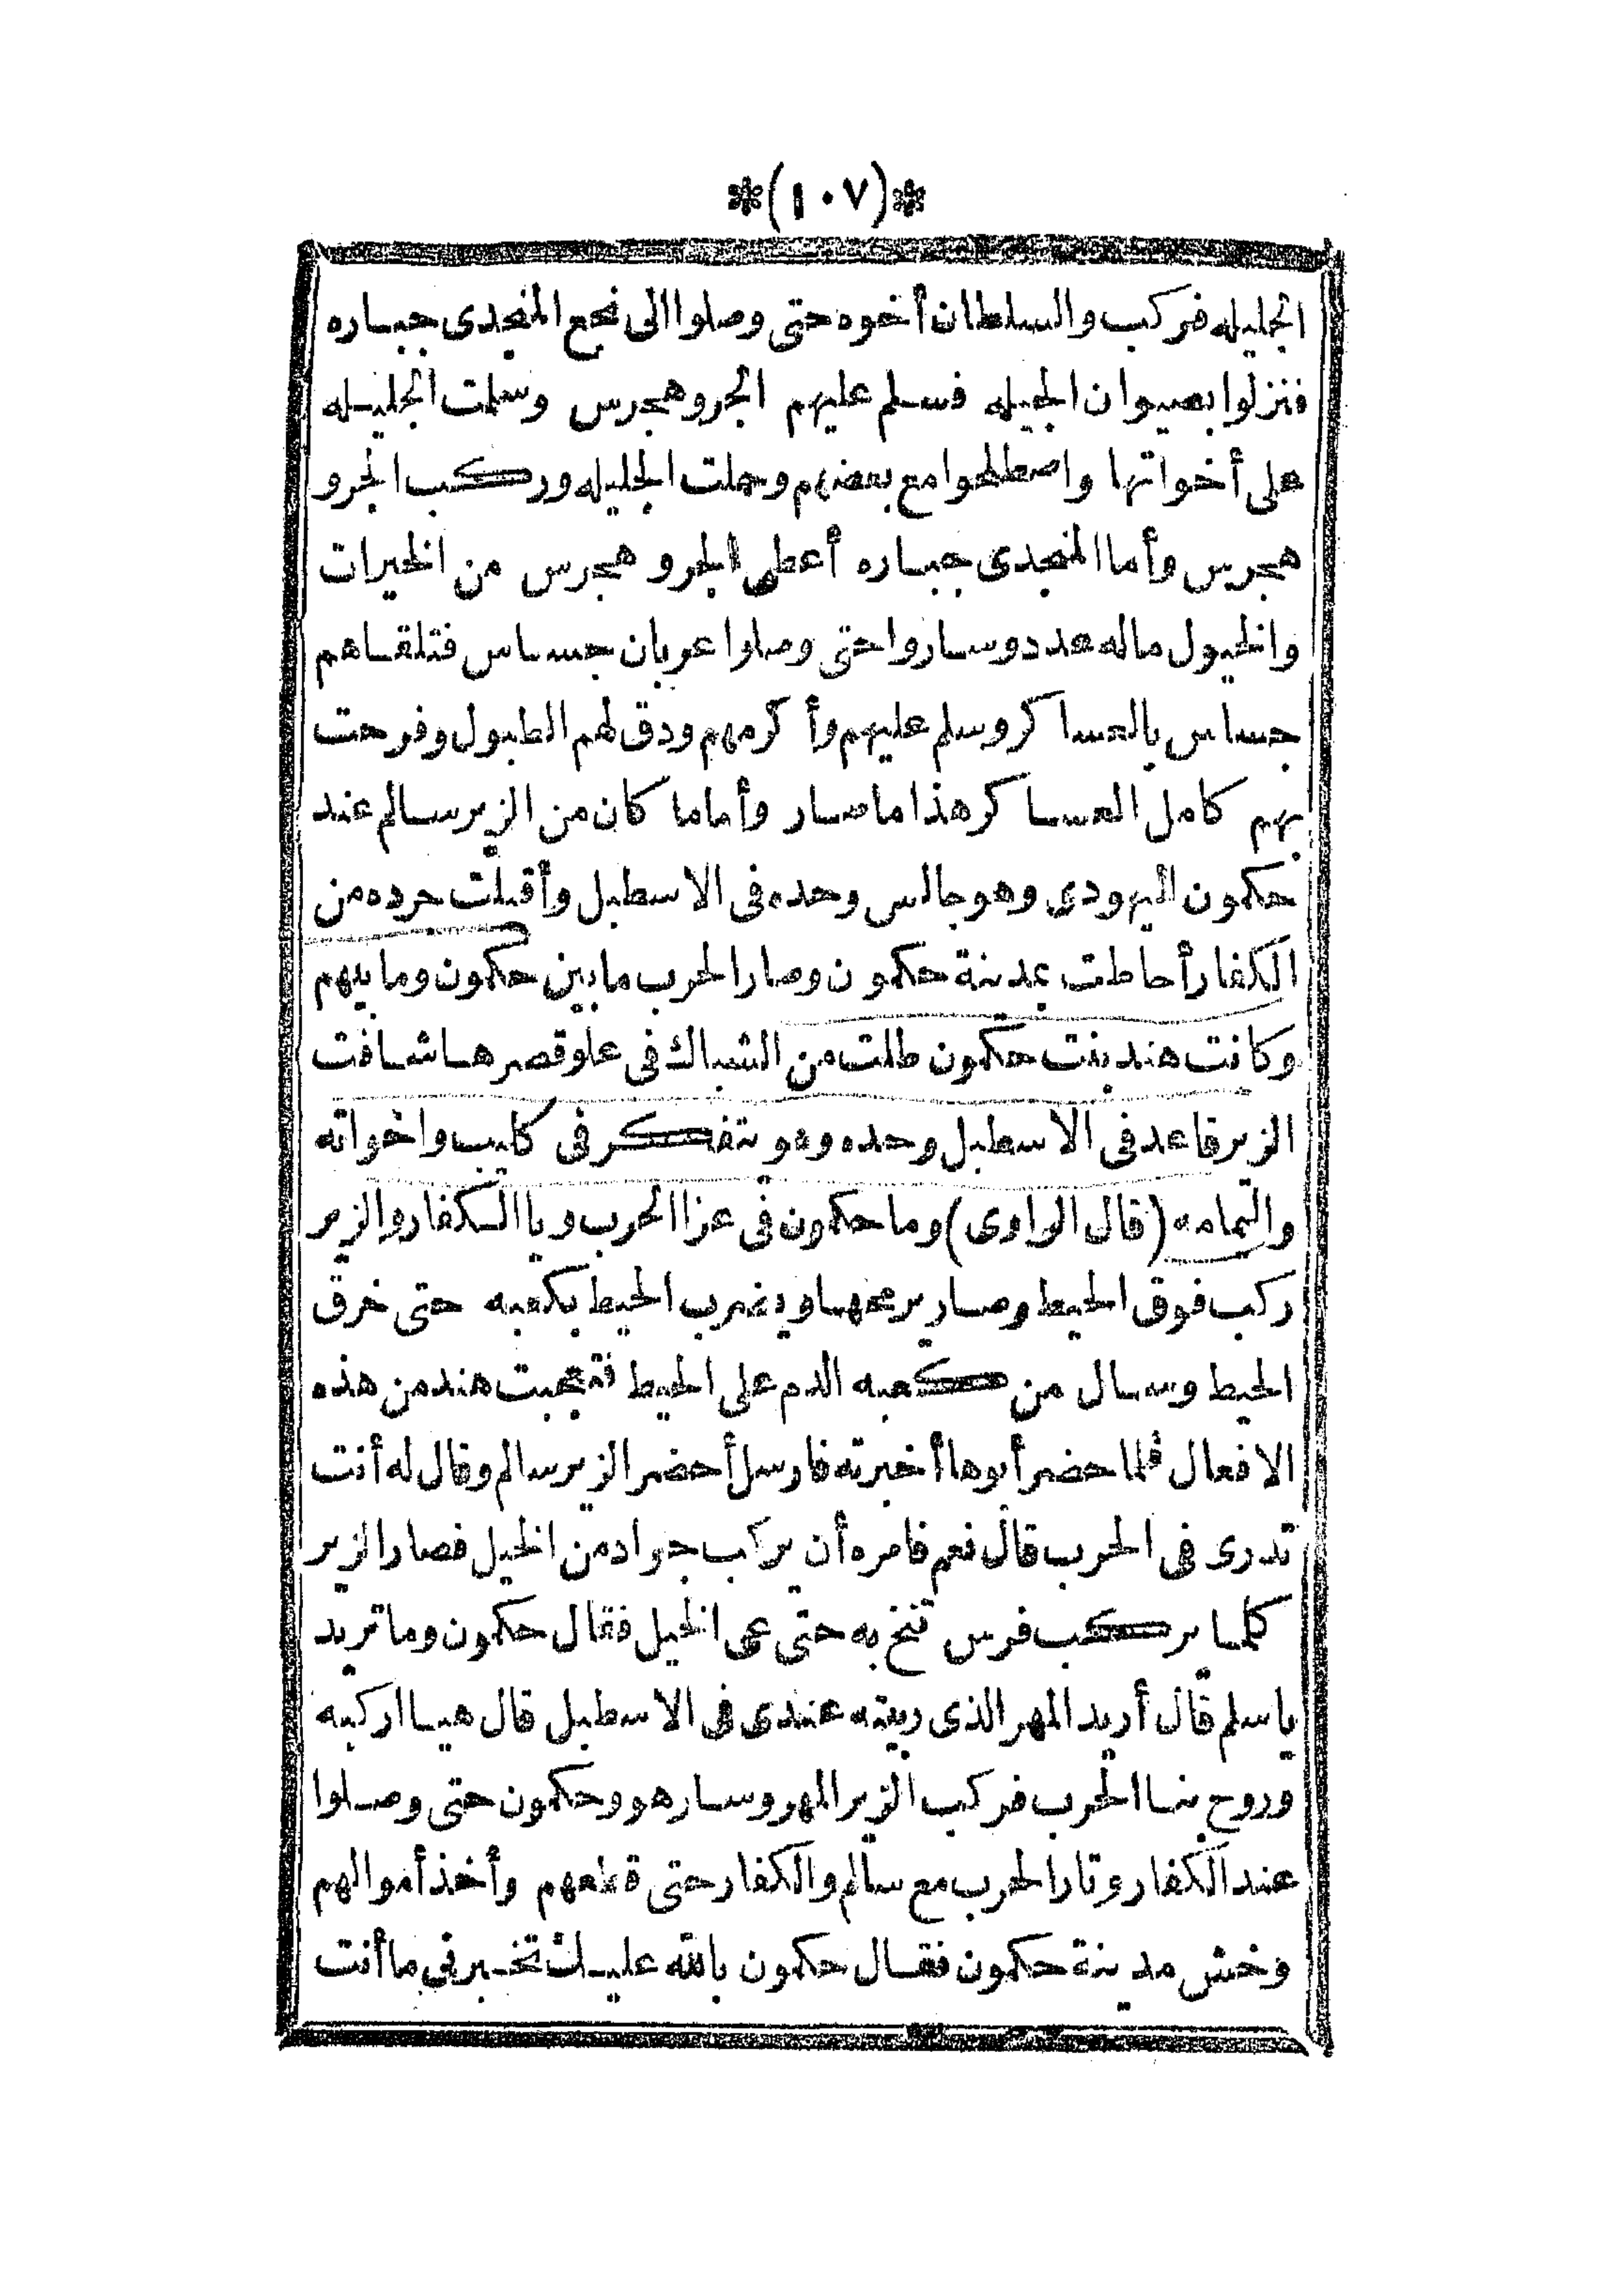 *(١٠٧)*
الجليله فركب والسلطان أخوه حتى وصلوا الى نجع المنجدى جباره
فنزلوا بصيوان الجميله فسلم عليهم الجرو هجرس وسلمت الجليله
على أخواتها واصطلحوا مع بعضهم وحملت الجليله وركب الجرو
هجرس وأما المنجدى جباره أعطى الجرو هجرس من الخيرات
والخيول ماله عدد وساروا حتى وصلوا عربان جساس فتلقاهم
جساس بالعساكر وسلم عليهم وأكرمهم ودق لهم الطبول وفرحت
بهم كامل العساكر هذا ما صار وأما ما كان من الزير سالم عند
حكمون اليهودى وهو جالس وحده فى الاسطبل وأقبلت جرده من
الكفار أحاطت بمدينة حكمون وصار الحرب ما بين حكمون وما بينهم
وكانت هند بنت حكمون طلت من الشباك فى علو قصرها شافت
الزير قاعد فى الاسطبل وحده وهو يتفكر فى كليب واخواته
واليمامه (قال الراوى) وما حكمون فى عز الحرب ويا الكفار والزير
ركب فوق الحيط وصار يرمحها ويضرب الحيط بكعبه حتى خرق
الحيط وسال من كعبه الدم على الحيط فتعجبت هند من هذه
الافعال فلما حضر أبوها أخبرته فارسل أحضر الزير سالم وقال له أنت
تدرى فى الحرب قال نعم فامره أن يركب جواد من الخيل فصار الزير
كلما يركب فرس تنخ به حتى عمى الخيل فقال حكمون وما تريد
يا سلم قال أريد المهر الذى ربيته عندى فى الاسطبل قال هيا اركبه
وروح بنا الحرب فركب الزير المهر وسار هو وحكمون حتى وصلوا
عند الكفار وثار الحرب مع سالم والكفار حتى قطعهم وأخذ أموالهم
وخش مدينة حكمون فقال حكمون بالله عليك تخبرنى ما أنت